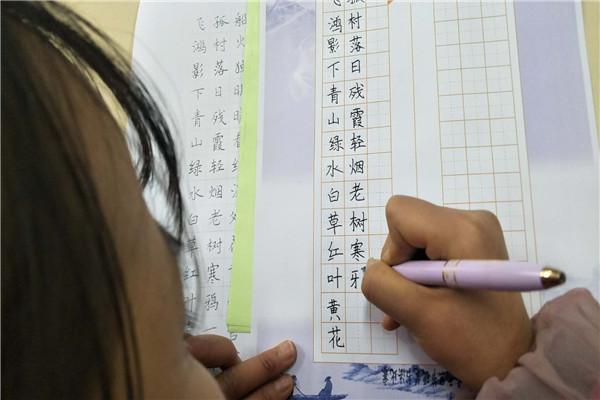 孤村落日残霞轻烟老树寒牙
飞鸿影下青山绿水白草红叶黄花
船火独
孤村落日残霞轻烟老树寒鸦一
飞鸿影下青山绿水白草红叶